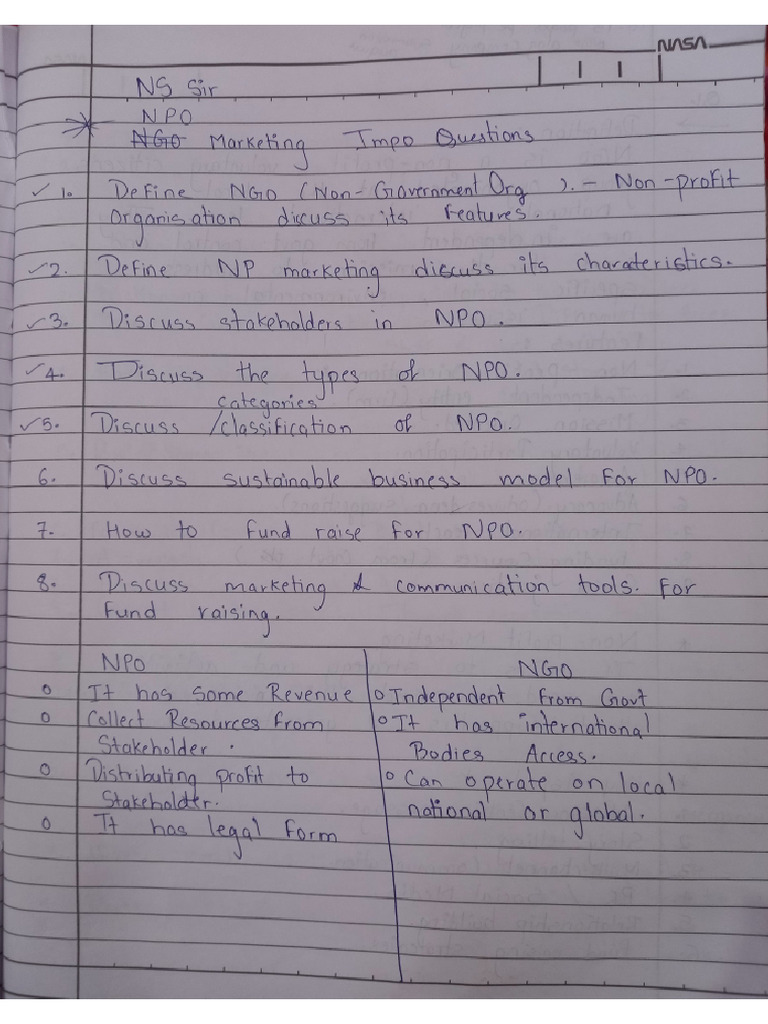 NASA
NS Sir
NPO
NGO Marketing Impo Questions
1. Define NGO (Non-Government Org ). - Non-profit
Organisation discuss its features.
2. Define NP marketing discuss its charateristics.
3. Discuss stakeholders in NPO.
4. Discuss the types of NPO.
categories
5. Discuss /classification of NPO.
6. Discuss sustainable business model for NPO.
7. How to fund raise for NPO.
8. Discuss marketing & communication tools. For
fund raising.
NPO NGO
o It has some Revenue o Independent from Govt
o Collect Resources from o It has international
Stakeholder. Bodies Access.
o Distributing profit to o Can operate on local
Stakeholder. national or global.
o It has legal form